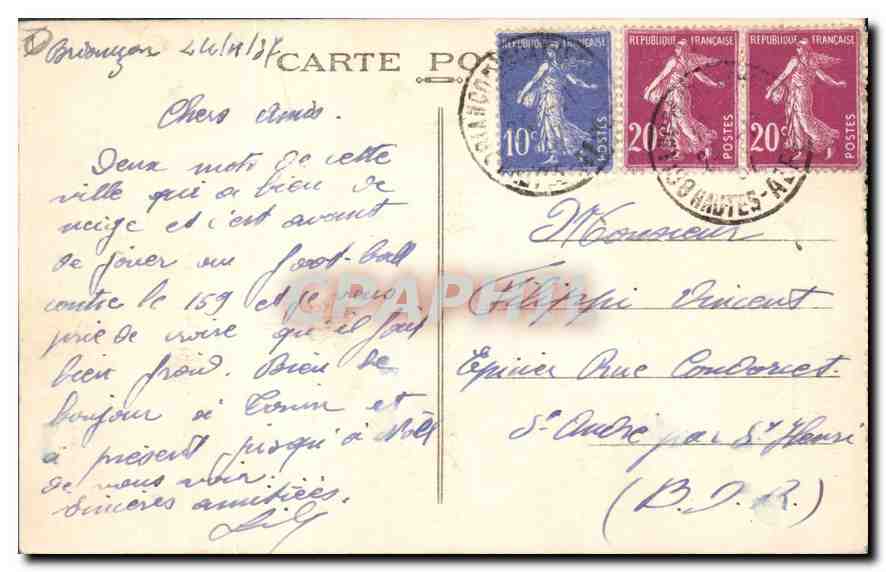 Briançon
CARTE PO
Chers Amis.
Deux mots de cette
ville qui a bien de
neige et c'est avant
de jouer au foot-ball
contre le 159 et je vous
prie de croire qu'il fait
bien froid. Bien le
bonjour à et
à présent jusqu'à Noël
de vous voir.
Sincères amitiées.
REPUBLIQUE FRANÇAISE
10c
POSTES
REPUBLIQUE FRANÇAISE
20c
POSTES
REPUBLIQUE FRANÇAISE
20c
POSTES
BRIANCON
HAUTES-ALPES
Monsieur
Filippi Vincent
Epicier Rue Condorcet.
St André par St Henri
(B. D. R.)
CPAPHIL